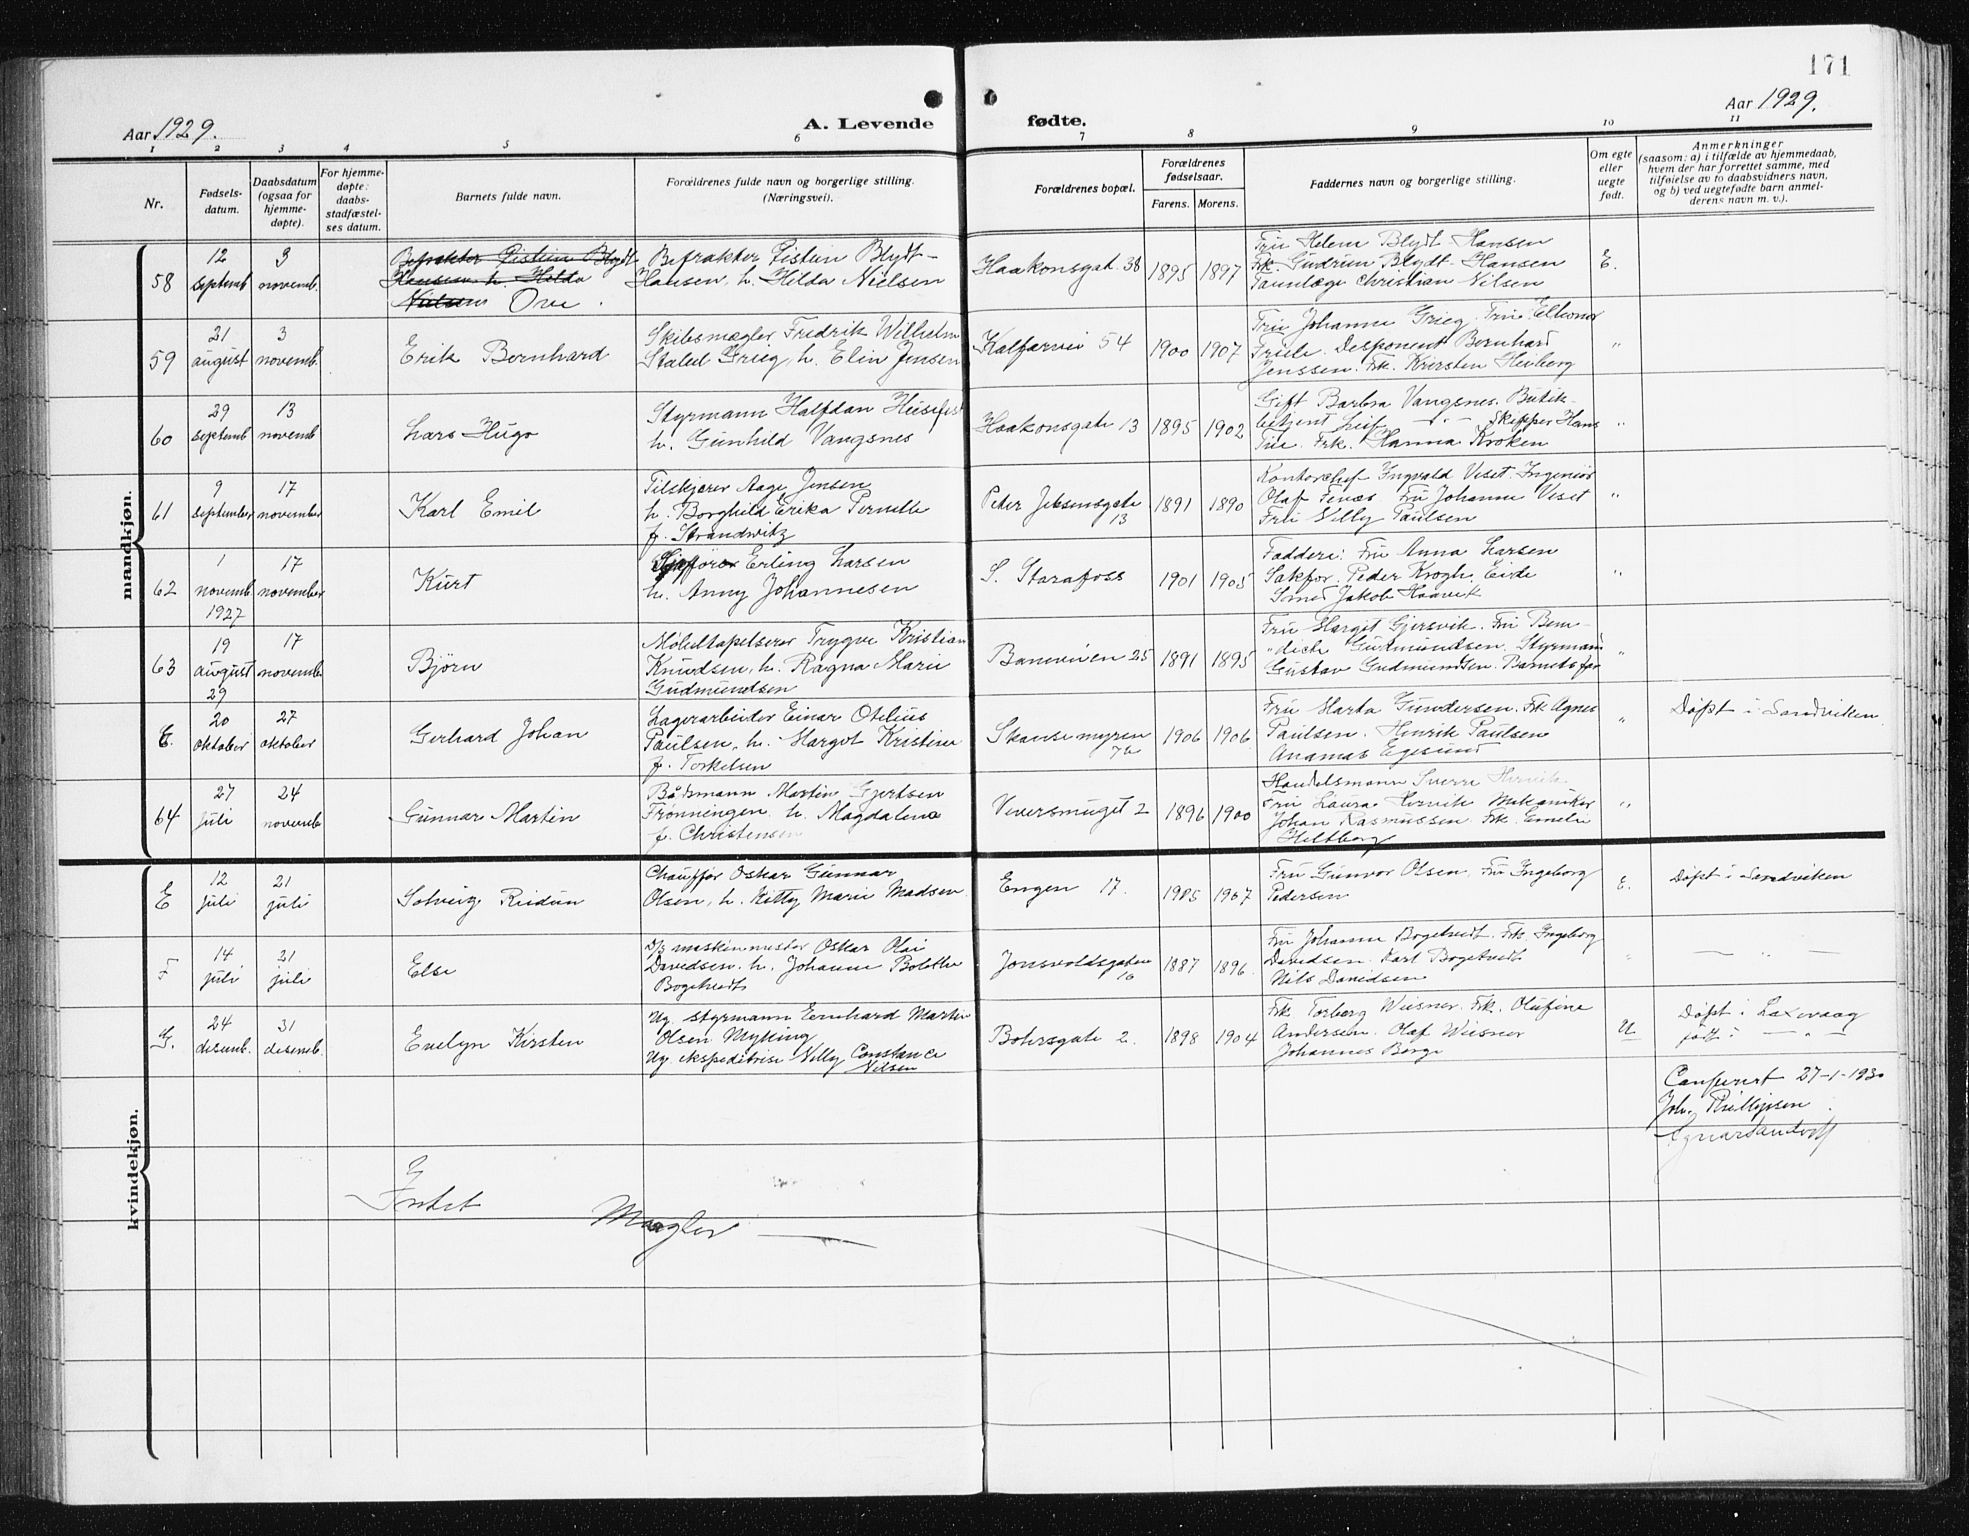 171
Aar 1929.
A. Levende fødte.
Aar 1929.
1 2 3 4 5 6 7 8 9 10 11
Nr.
Fødsels-
datum.
Daabsdatum
(ogsaa for
hjemme-
døpte).
For hjemme-
døpte:
daabs-
stadfæstel-
ses datum.
Barnets fulde navn.
Forældrenes fulde navn og borgerlige stilling.
(Næringsvei).
Forældrenes bopæl.
Forældrenes
fødselsaar.
Farens. Morens.
Faddernes navn og borgerlige stilling.
Om egte
eller
uegte
født.
Anmerkninger
(saasom: a) i tilfælde av hjemmedaab,
hvem der har forrettet samme, med
tilføielse av to daabsvidners navn,
og b) ved uegtefødte barn anmel-
derens navn m. v.).
mandkjøn.
58
12
septemb
3
novemb.
Befrakter Eistein Blydt
Hansen h. Hilda
Nielsen Ove
Befrakter Eistein Blydt-
Hansen, h. Hilda Nielsen
Haakonsgat. 38
1895 1897
Fru Helene Blydt Hansen
Frk. Gudrun Blydt-Hansen
Tannlæge Christian Nilsen
E.
59
21
august
3
novemb.
Erik Bernhard
Skibsmægler Fredrik Wilhelm
Staled Grieg, h. Elin Jensen
Kalfarvei 54
1900 1907
Fru Johanne Grieg. Fru Elleonor
Friele. Desponent Bernhard
Jenssen. Frk. Kirsten Heiberg
"
60
29
septemb
13
novemb
Lars Hugo
Styrmann Halfdan
h. Gunhild Vangsnes
Haakonsgate 13
1895 1902
Gift Barbra Vangsnes. Butik-
betjent Leif - " - Skipper Hans
Tue. Frk. Hanna Kroken
"
61
9
september
17
november
Karl Emil
Tilskjærer Aage Jensen
h. Borghild Erika Pernelle
f. Strandwitz
Peder Jebsensgate
13
1891 1890
Kontorchef Ingvald Viset. Ingeniør
Olaf Fenæs Fru Johanne Viset
Fru Nelly Paulsen
"
62
1
novemb.
1927
17
november
Kurt
Erling Larsen
h. Anny Johannesen
S. Starafoss
1901 1905
Faddere: Fru Anna Larsen
Sakfør. Peder Krogh.
Smed Jakob Haavik
"
63
19
august
29
17
novemb.
Bjørn
Møbeltapetserer Trygve Kristian
Knudsen, h. Ragna Marie
Gudmundsen
Baneveien 25
1891 1895
Fru Margit Gjersvik. Fru Bene-
"dicte Gudmundsen. Styrmann
Gustav Gudmundsen. Barnets far
"
E.
20
oktober
27
oktober
Gerhard Johan
Lagerarbeider Einar Otelius
Paulsen, h. Margot Kristine
f. Torkelsen
Skansemyren
76
1906 1906
Fru Marta Gundersen. Frk Agnes
Paulsen. Henrik Paulsen
Ananias Egesund
"
Døpt i Sandviken
64
27
juli
24
novemb
Gunnar Martin
Båtsmann Martin Gjertsen
Frønningen h. Magdalena
f. Christensen
Veversmuget 2
1896 1900
Handelsmann Sverre Hervik
Fru Laura Hervik Mekaniker
Johan Rasmussen Frk. Emelie
Heltborg
"
kvindekjøn.
E
12
juli
21
juli
Solveig Reidun
Chauffør Oskar Gunnar
Olsen, h. Kitty Marie Madsen
Engen 17.
1905 1907
Fru Gunvor Olsen, Fru Ingeborg
Pedersen
E.
Døpt i Sandviken
F
14
juli
21
juli
Else
D/s maskinmester Oskar Olai
Davidsen. h. Johanne Bolette
Bogetvedt
Jonsvoldsgaten
16
1887 1896
Fru Johanne Bogetvedt. Frk. Ingeborg
Davidsen. Karl Bogetvedt
Nils Davidsen
"
— " —
G.
24
desemb.
31
desemb.
Evelyn Kirsten
Ug. styrmann Eernhard Martin
Olsen Myking
Ug ekspeditrise Nelly Constance
Nilsen
Bohrsgate 2.
1898 1904
Frk Torborg Wiesner. Frk. Olufine
Andersen. Olaf Wiesner
Johannes Borge
U
Døpt i Laxevaag
født i — " —
Confereret 27-1-1930
Joh. Phillipsen
Intet Mangler